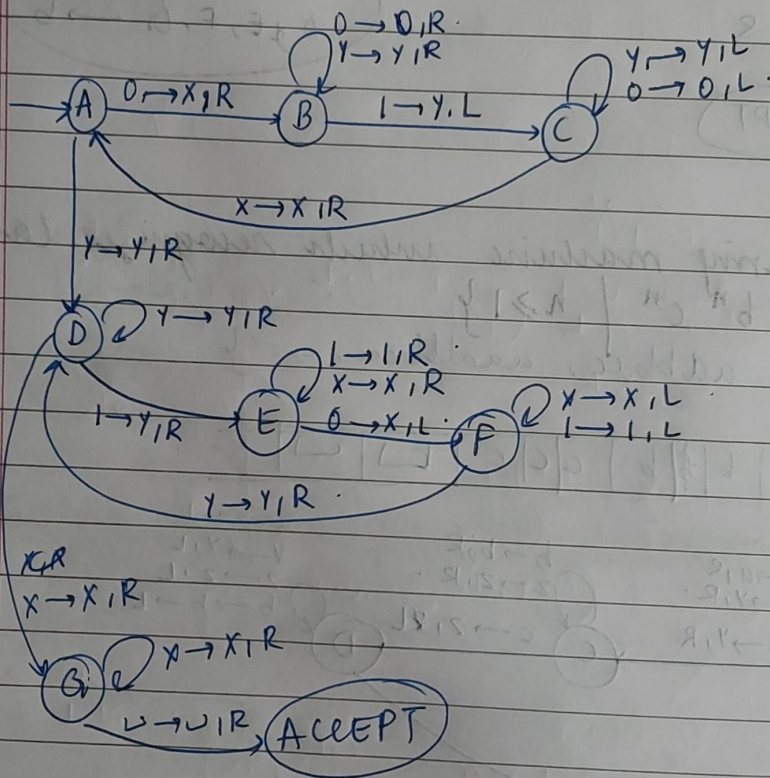 0 → 0, R
Y → Y, R
Y → Y, L
0 → 0, L
A
0 → X, R
B
1 → Y, L
C
X → X, R
Y → Y, R
D
Y → Y, R
1 → 1, R
X → X, R
1 → Y, R
E
0 → X, L
F
X → X, L
1 → 1, L
Y → Y, R
X → X, R
G
X → X, R
⊔ → ⊔, R
ACCEPT